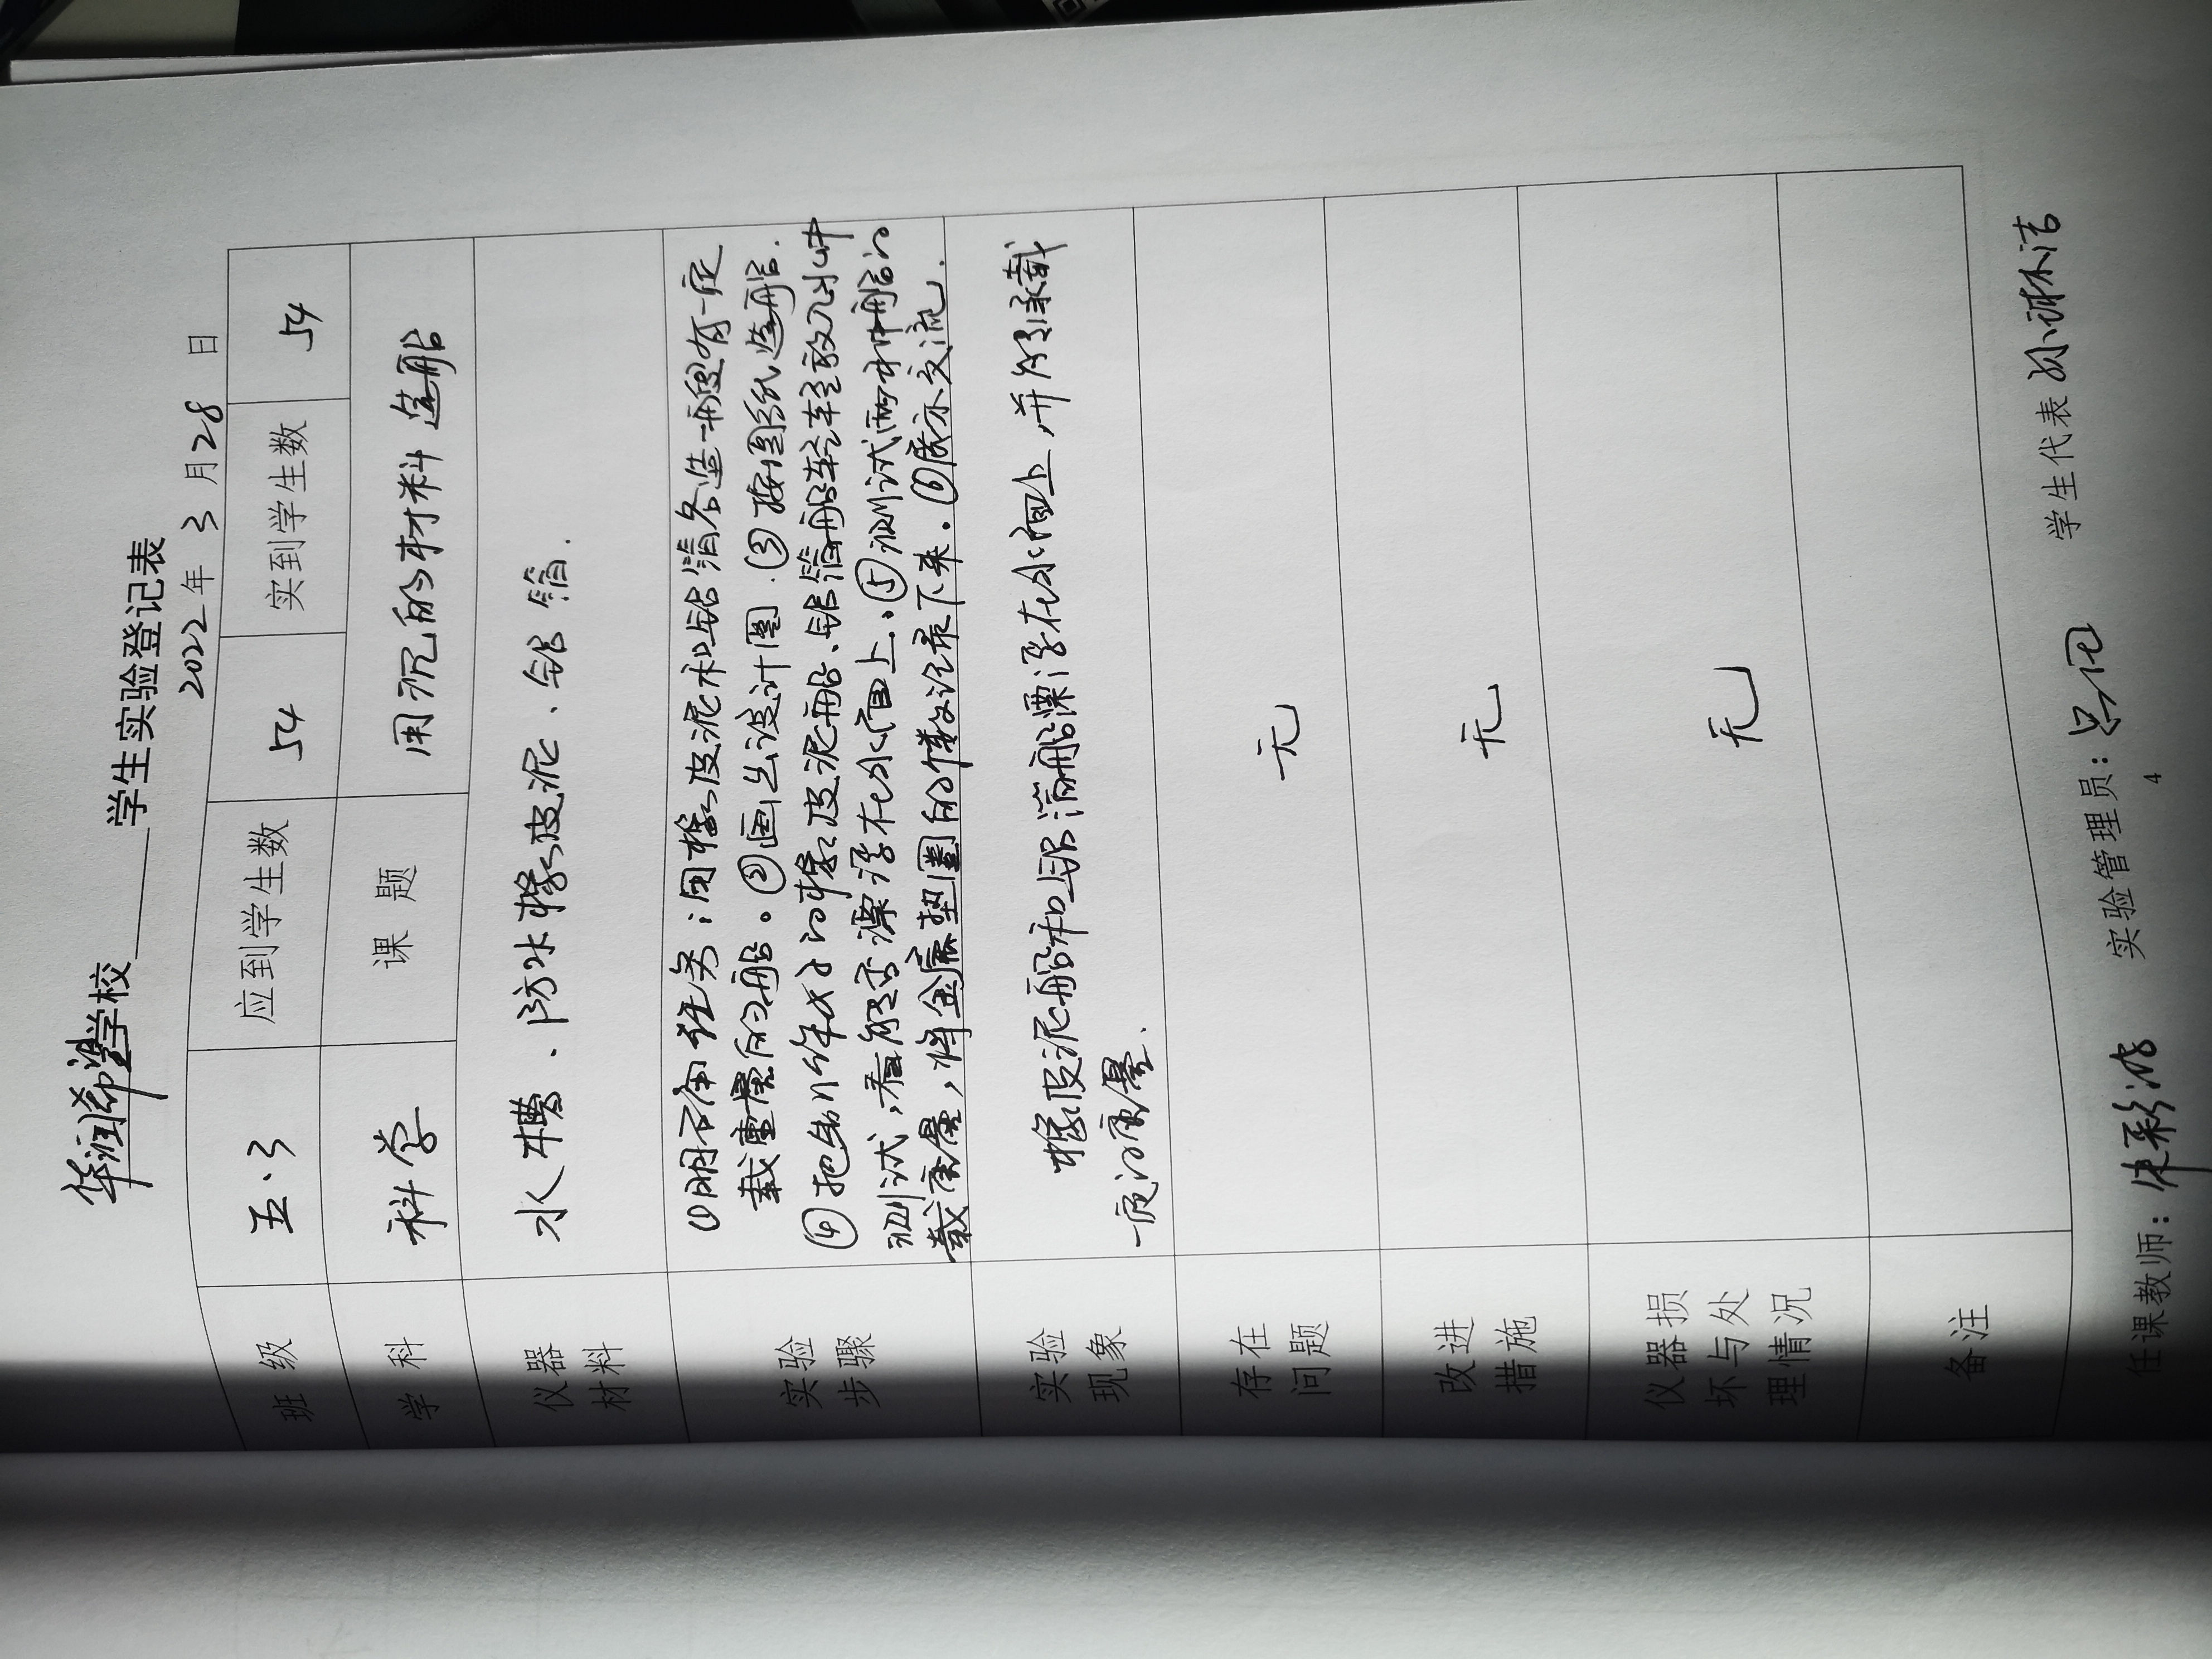 华润希望学校 学生实验登记表
2022年 3 月 28 日
班 级 五.3 应到学生数 54 实到学生数 54
学 科 科学 课 题 用沉的材料造船
仪器 材料 水槽、防水橡皮泥、铝箔.
实验 步骤 ①明确任务:用橡皮泥和铝箔各造一艘有一定
载重量的船。②画出设计图.③按图纸造船.
④把制作好的橡皮泥船、铝箔船轻轻放入水中
测试,看能否漂浮在水面上。⑤测试两种船的
载重量,将金属垫圈的个数记录下来.⑥展示交流.
实验 现象 橡皮泥船和铝箔船漂浮在水面上,并能承载
一定的重量.
存在 问题 无
改进 措施 无
仪器损 坏与处 理情况 无
备注
任课教师: 实验管理员: 学生代表
4